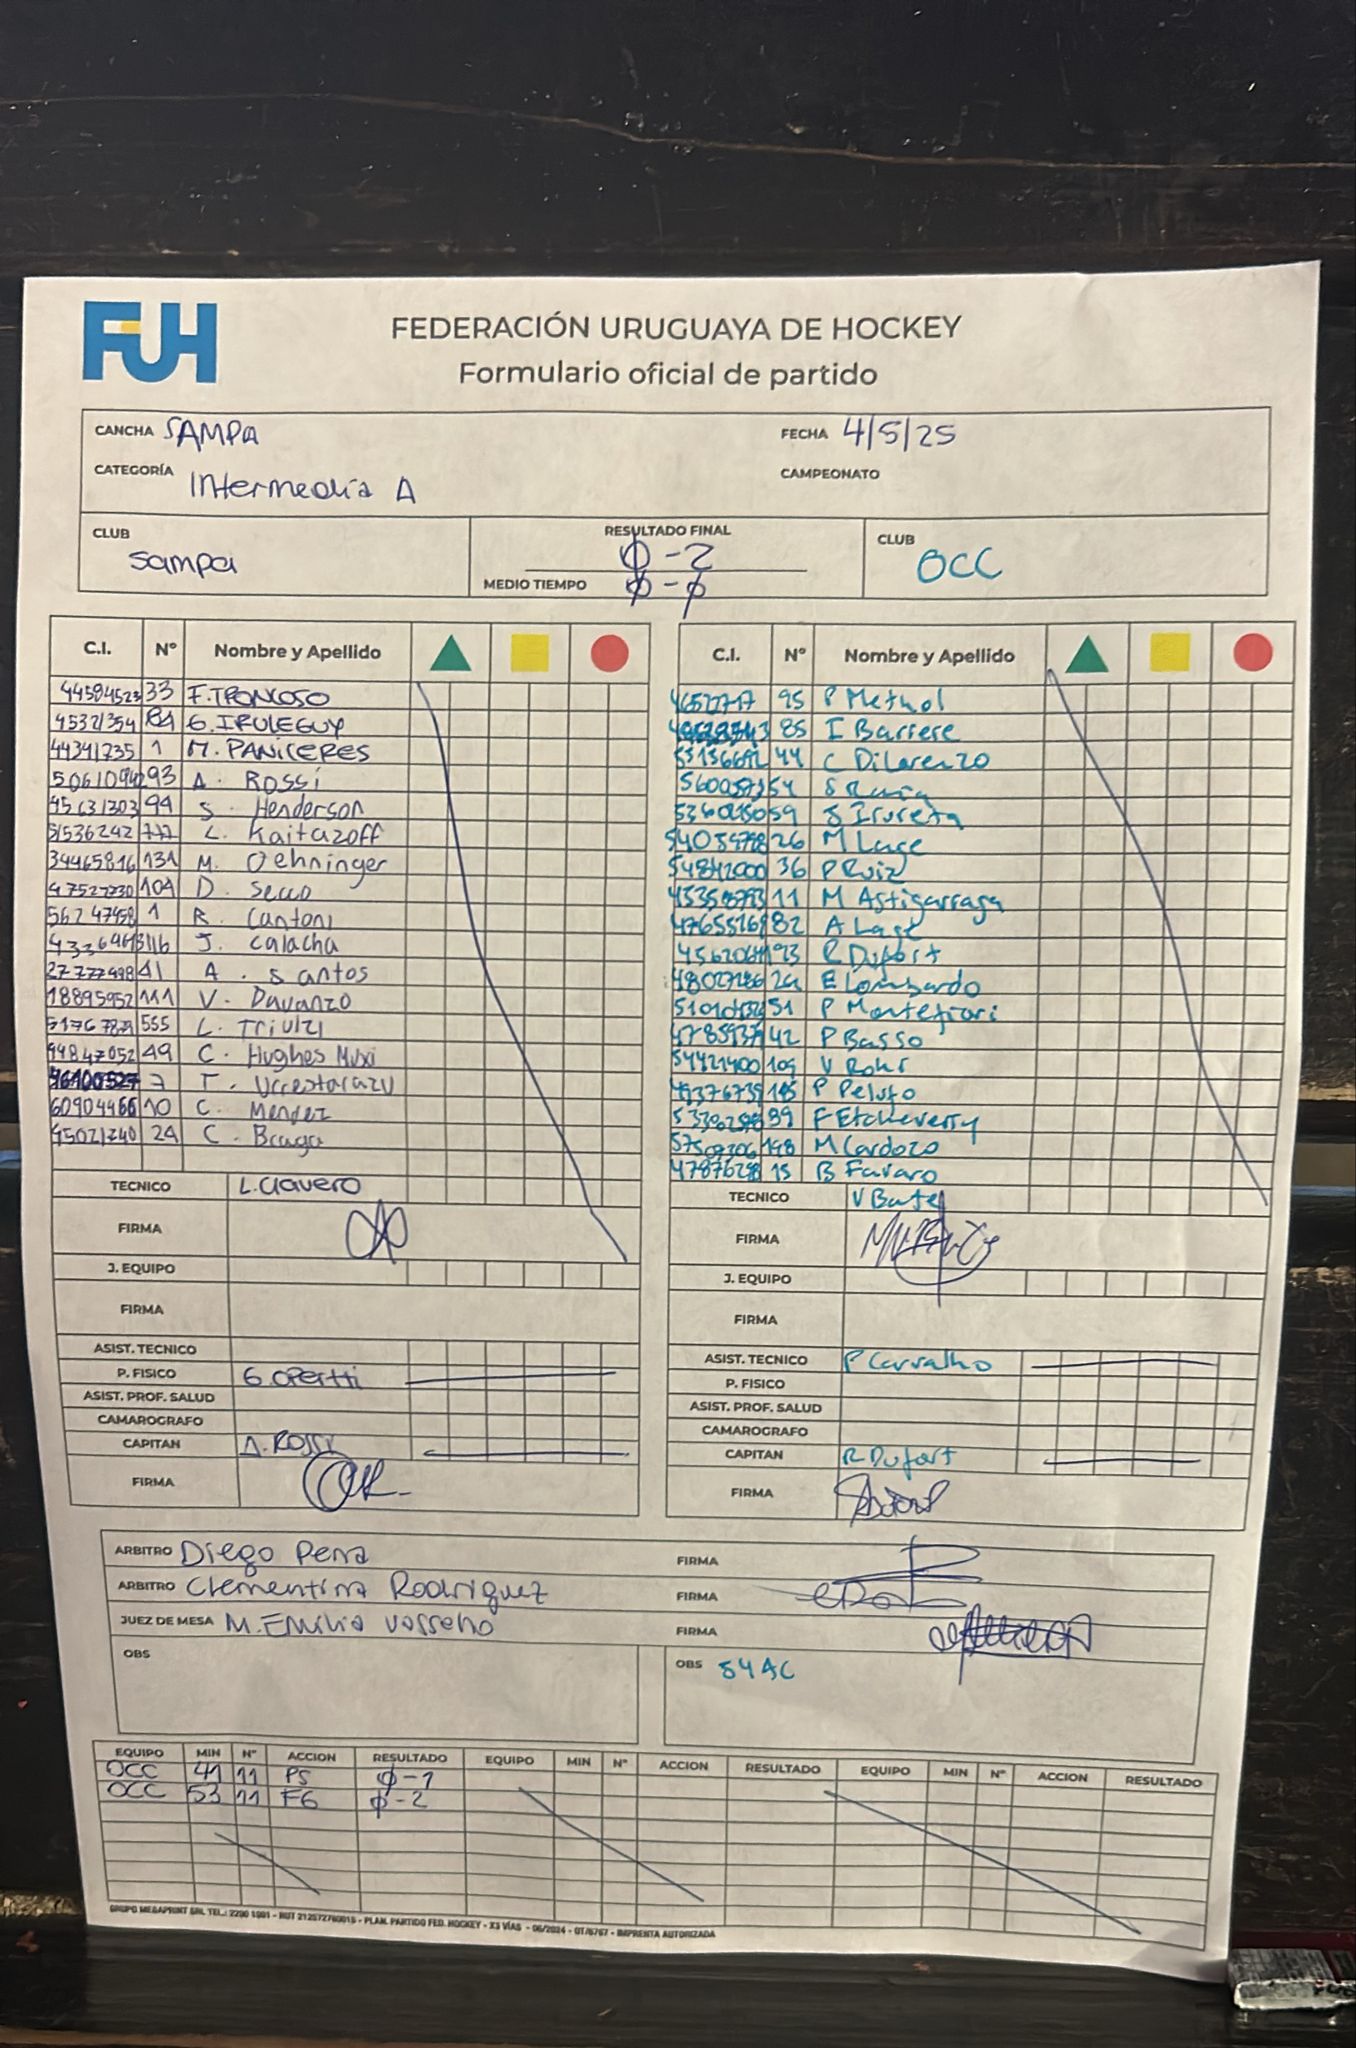 FUH
FEDERACIÓN URUGUAYA DE HOCKEY
Formulario oficial de partido
CANCHA SAMPA FECHA 4/5/25
CATEGORÍA Intermedia A CAMPEONATO
CLUB RESULTADO FINAL CLUB
Sampa 0-2 OCC
MEDIO TIEMPO 0-0
C.I. Nº Nombre y Apellido
44584523 33 F. TRONCOSO
45321354 G. IRULEGUY
44341235 1 M. PANICERES
93 A. ROSSI
45631303 94 S. Henderson
51536242 777 L. Kaitazoff
34465816 131 M. Oehninger
47527230 104 D. Secco
56247458 1 R. Cantoni
J. Calacha
27777498 41 A. Santos
18895952 111 V. Davanzo
555 L. TRIULZI
44847052 49 C. Hughes Muxi
7 T. Urrestarazu
60904466 10 C. Mendez
45021240 24 C. Braga
TECNICO L. Clavero
FIRMA
J. EQUIPO
FIRMA
ASIST. TECNICO
P. FISICO G. Opertti
ASIST. PROF. SALUD
CAMAROGRAFO
CAPITAN A. ROSSI
FIRMA
C.I. Nº Nombre y Apellido
95 P Methol
85 I Barrere
44 C DiLorenzo
54 S
59 S Irureta
26 M Lage
54842000 36 P Ruiz
11 M Astigarraga
82 A Lage
93 R Dufort
24 E Lombardo
51 P Montefiori
42 P Basso
54421400 109 V Rohr
P Peluto
99 F Etcheverry
148 M Cardozo
15 B Favaro
TECNICO V Bate
FIRMA
J. EQUIPO
FIRMA
ASIST. TECNICO P Carvalho
P. FISICO
ASIST. PROF. SALUD
CAMAROGRAFO
CAPITAN R Dufort
FIRMA
ARBITRO Diego Pena FIRMA
ARBITRO Clementina Rodriguez FIRMA
JUEZ DE MESA M. Emilia FIRMA
OBS
OBS 54 AC
EQUIPO MIN Nº ACCION RESULTADO EQUIPO MIN Nº ACCION RESULTADO EQUIPO MIN Nº ACCION RESULTADO
OCC 41 11 PS 0-1
OCC 53 11 FG 0-2
GRUPO MEGAPRINT SRL TEL.: 2290 1901 - RUT 212572760015 - PLAN. PARTIDO FED. HOCKEY - X3 VÍAS - 06/2024 - OT/6767 - IMPRENTA AUTORIZADA